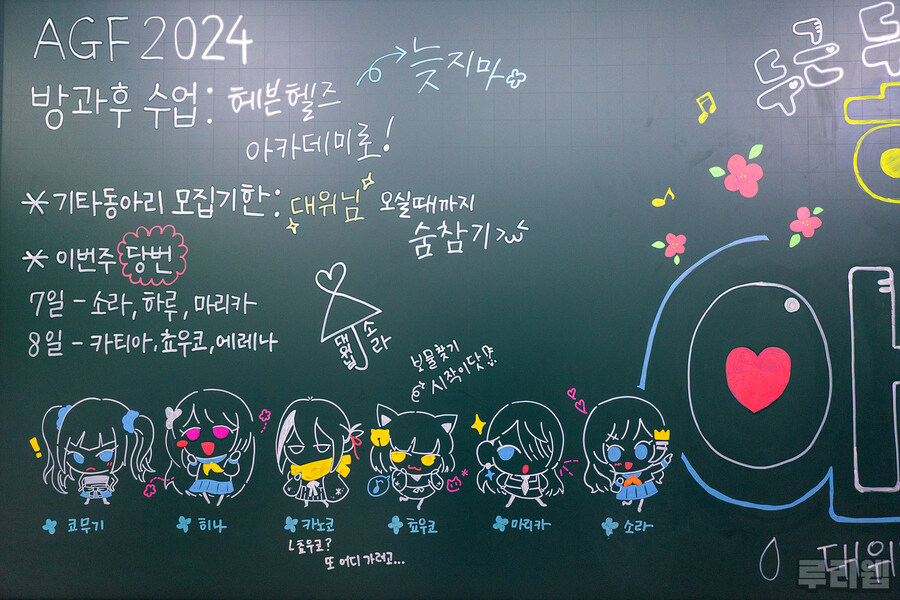 AGF 2024
늦지마
방과후 수업: 헤븐헬즈
아카데미로!
* 기타동아리 모집기한: 대위님 오실때까지
숨참기
* 이번주 당번
7일 - 소라, 하루, 마리카
8일 - 카티아, 쵸우코, 에레나
소라
보물찾기
시작이닷!
두근두
코무기
히나
카노코
쵸우코
마리카
소라
쵸우코?
또 어디 가려고...
대위
루리웹